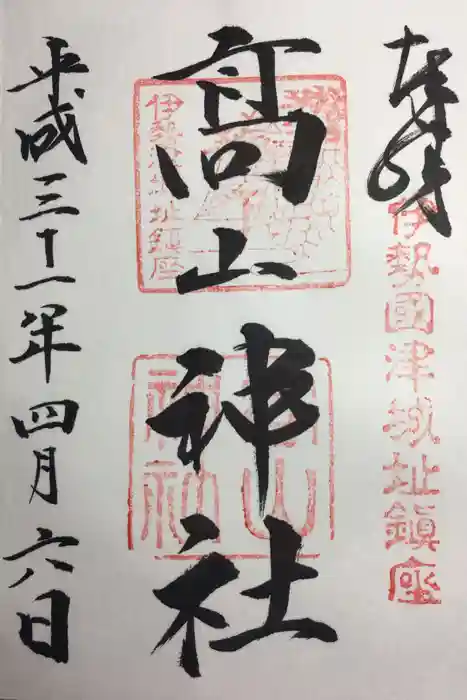 奉拝
伊勢國津城址鎮座
高山神社
伊勢津城址鎮座
高山神社
平成三十一年四月六日